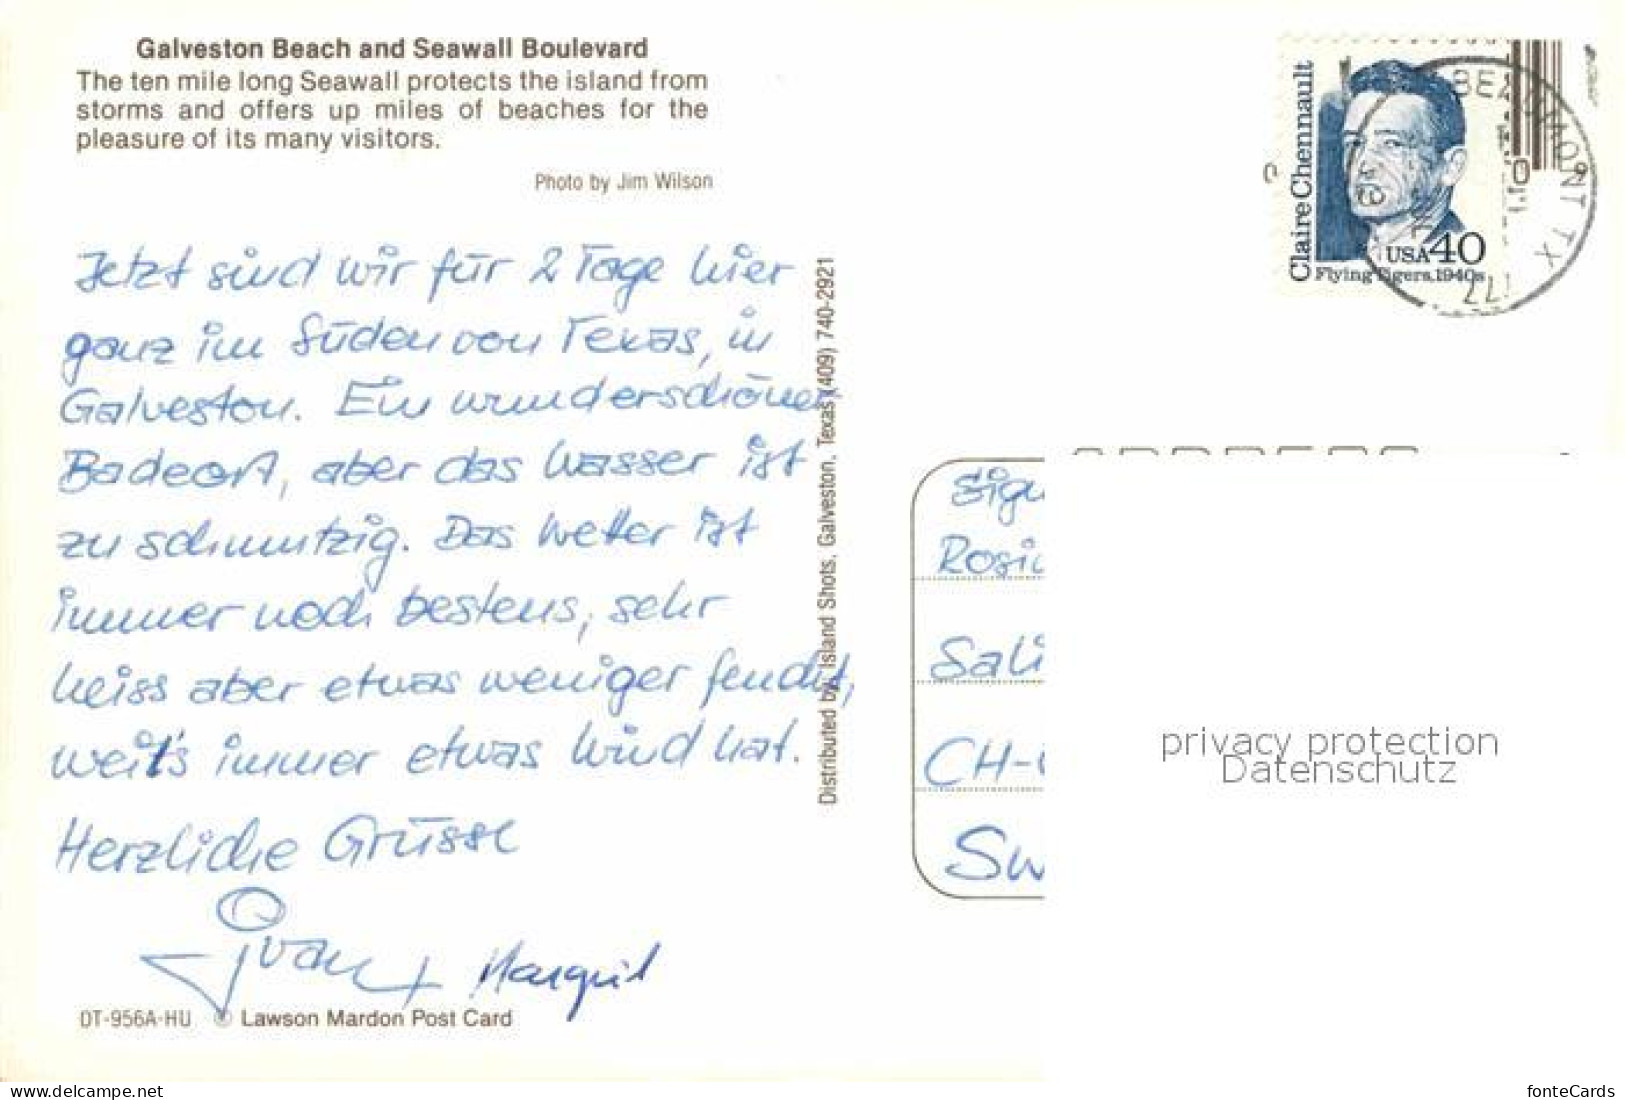 Galveston Beach and Seawall Boulevard
The ten mile long Seawall protects the island from
storms and offers up miles of beaches for the
pleasure of its many visitors.
Photo by Jim Wilson
Jetzt sind wir für 2 Tage hier
ganz im Süden von Texas, in
Galveston. Ein wunderschöner
Badeort, aber das Wasser ist
zu schmutzig. Das Wetter ist
immer noch bestens, sehr
heiss aber etwas weniger feucht,
weil's immer etwas Wind hat.
Herzliche Grüsse
Ivan + Margrit
DT-956A-HU © Lawson Mardon Post Card
Distributed by: Island Shots, Galveston, Texas (409) 740-2921
Claire Chennault
USA 40
Flying Tigers, 1940s
BEAUMONT TX
777
Rosi
Sali
CH-
Sw
privacy protection
Datenschutz
https://www.delcampe.net
fonteCards